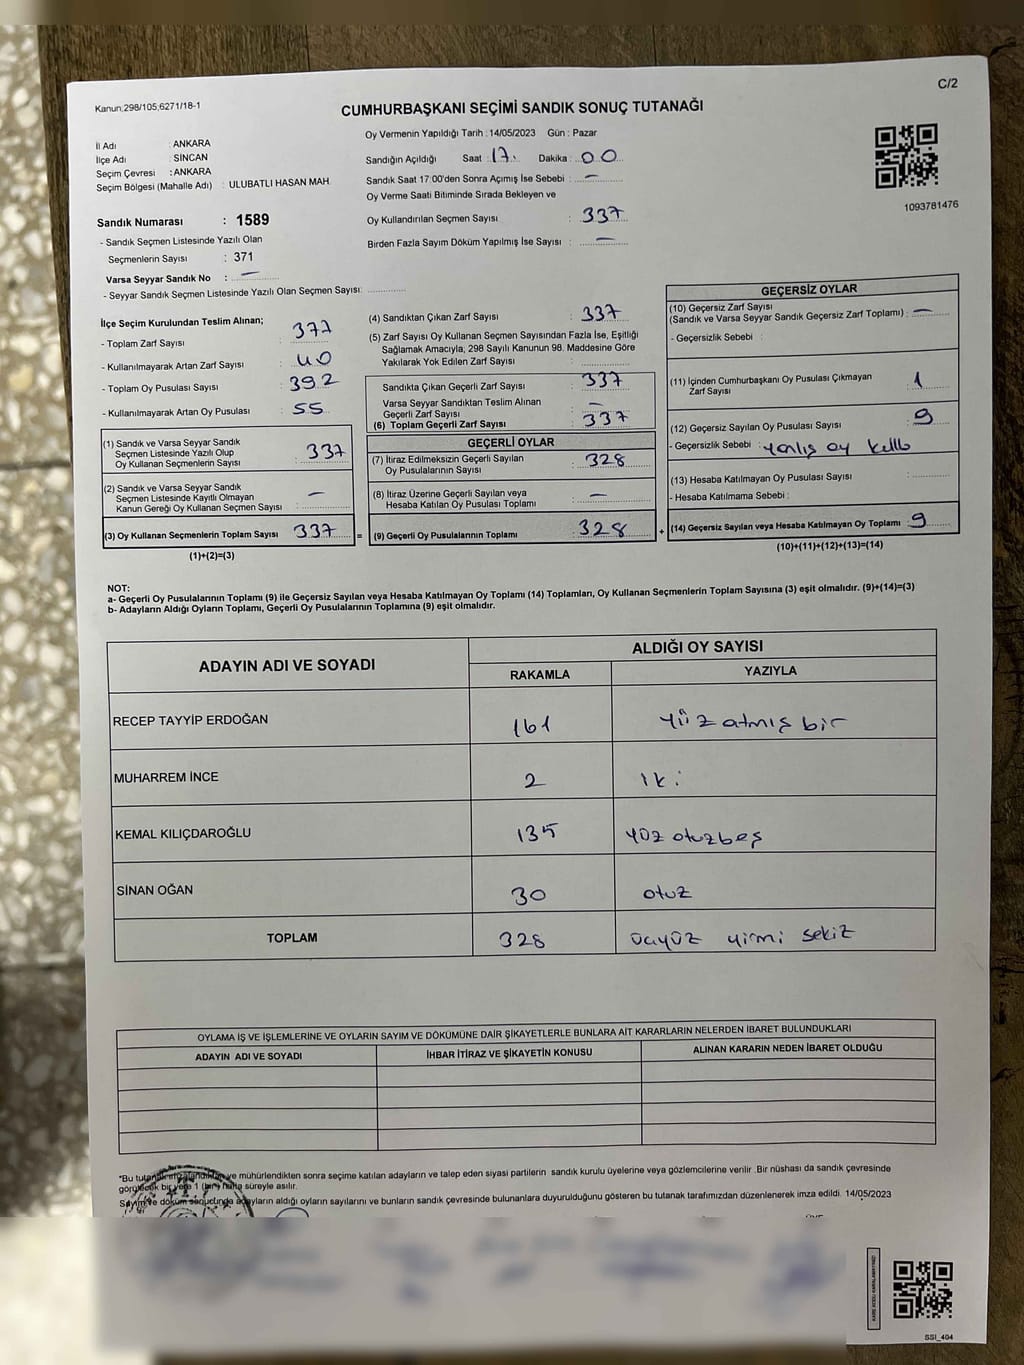 C/2
Kanun:298/105,6271/18-1
CUMHURBAŞKANI SEÇİMİ SANDIK SONUÇ TUTANAĞI
Oy Vermenin Yapıldığı Tarih : 14/05/2023 Gün : Pazar
İl Adı : ANKARA
İlçe Adı : SİNCAN
Seçim Çevresi : ANKARA
Seçim Bölgesi (Mahalle Adı) : ULUBATLI HASAN MAH.
Sandık Numarası : 1589
- Sandık Seçmen Listesinde Yazılı Olan
Seçmenlerin Sayısı : 371
Varsa Seyyar Sandık No : —
- Seyyar Sandık Seçmen Listesinde Yazılı Olan Seçmen Sayısı:
Sandığın Açıldığı Saat : 17. Dakika : 00
Sandık Saat 17:00'den Sonra Açımış İse Sebebi : —
Oy Verme Saati Bitiminde Sırada Bekleyen ve
Oy Kullandırılan Seçmen Sayısı : 337
Birden Fazla Sayım Döküm Yapılmış İse Sayısı : —
1093781476
İlçe Seçim Kurulundan Teslim Alınan;
- Toplam Zarf Sayısı : 377
- Kullanılmayarak Artan Zarf Sayısı : 40
- Toplam Oy Pusulası Sayısı : 392
- Kullanılmayarak Artan Oy Pusulası : 55
(1) Sandık ve Varsa Seyyar Sandık
Seçmen Listesinde Yazılı Olup
Oy Kullanan Seçmenlerin Sayısı : 337
(2) Sandık ve Varsa Seyyar Sandık
Seçmen Listesinde Kayıtlı Olmayan
Kanun Gereği Oy Kullanan Seçmen Sayısı : —
(3) Oy Kullanan Seçmenlerin Toplam Sayısı : 337
(1)+(2)=(3)
(4) Sandıktan Çıkan Zarf Sayısı : 337
(5) Zarf Sayısı Oy Kullanan Seçmen Sayısından Fazla İse, Eşitliği
Sağlamak Amacıyla, 298 Sayılı Kanunun 98. Maddesine Göre
Yakılarak Yok Edilen Zarf Sayısı :
Sandıkta Çıkan Geçerli Zarf Sayısı : 337
Varsa Seyyar Sandıktan Teslim Alınan
Geçerli Zarf Sayısı : —
(6) Toplam Geçerli Zarf Sayısı : 337
GEÇERLİ OYLAR
(7) İtiraz Edilmeksizin Geçerli Sayılan
Oy Pusulalarının Sayısı : 328
(8) İtiraz Üzerine Geçerli Sayılan veya
Hesaba Katılan Oy Pusulası Toplamı : —
= (9) Geçerli Oy Pusulalarının Toplamı : 328
GEÇERSİZ OYLAR
(10) Geçersiz Zarf Sayısı
(Sandık ve Varsa Seyyar Sandık Geçersiz Zarf Toplamı) : —
- Geçersizlik Sebebi :
(11) İçinden Cumhurbaşkanı Oy Pusulası Çıkmayan
Zarf Sayısı : 1
(12) Geçersiz Sayılan Oy Pusulası Sayısı : 9
- Geçersizlik Sebebi : yanlış oy
(13) Hesaba Katılmayan Oy Pusulası Sayısı :
- Hesaba Katılmama Sebebi :
+ (14) Geçersiz Sayılan veya Hesaba Katılmayan Oy Toplamı : 9
(10)+(11)+(12)+(13)=(14)
NOT:
a- Geçerli Oy Pusulalarının Toplamı (9) ile Geçersiz Sayılan veya Hesaba Katılmayan Oy Toplamı (14) Toplamları, Oy Kullanan Seçmenlerin Toplam Sayısına (3) eşit olmalıdır. (9)+(14)=(3)
b- Adayların Aldığı Oyların Toplamı, Geçerli Oy Pusulalarının Toplamına (9) eşit olmalıdır.
ADAYIN ADI VE SOYADI ALDIĞI OY SAYISI
RAKAMLA YAZIYLA
RECEP TAYYİP ERDOĞAN 161 Yüz atmış bir
MUHARREM İNCE 2 iki
KEMAL KILIÇDAROĞLU 135 yüz otuzbeş
SİNAN OĞAN 30 otuz
TOPLAM 328 üçyüz yirmi sekiz
OYLAMA İŞ VE İŞLEMLERİNE VE OYLARIN SAYIM VE DÖKÜMÜNE DAİR ŞİKAYETLERLE BUNLARA AİT KARARLARIN NELERDEN İBARET BULUNDUKLARI
ADAYIN ADI VE SOYADI İHBAR İTİRAZ VE ŞİKAYETİN KONUSU ALINAN KARARIN NEDEN İBARET OLDUĞU
*Bu ve mühürlendikten sonra seçime katılan adayların ve talep eden siyasi partilerin sandık kurulu üyelerine veya gözlemcilerine verilir. Bir nüshası da sandık çevresinde
görülecek bir yere 1 (bir) hafta süreyle asılır.
Sayım ve döküm sonucunda adayların aldığı oyların sayılarını ve bunların sandık çevresinde bulunanlara duyurulduğunu gösteren bu tutanak tarafımızdan düzenlenerek imza edildi. 14/05/2023
SSI_404